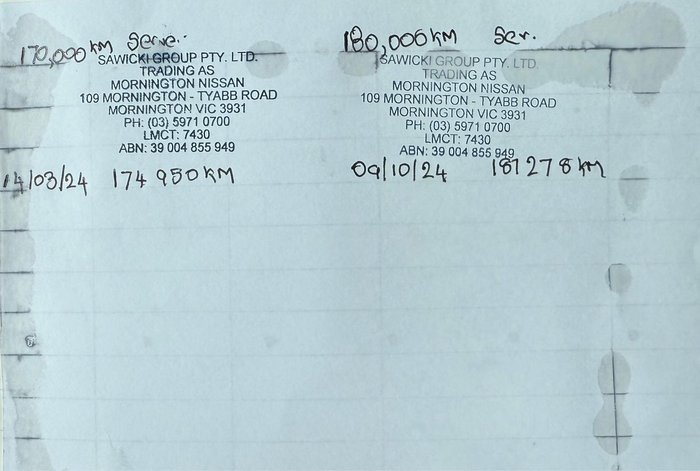 170,000 KM Serve..
SAWICKI GROUP PTY. LTD.
TRADING AS
MORNINGTON NISSAN
109 MORNINGTON - TYABB ROAD
MORNINGTON VIC 3931
PH: (03) 5971 0700
LMCT: 7430
ABN: 39 004 855 949
14/03/24 174 950 KM
180,000 KM Ser.
SAWICKI GROUP PTY. LTD.
TRADING AS
MORNINGTON NISSAN
109 MORNINGTON - TYABB ROAD
MORNINGTON VIC 3931
PH: (03) 5971 0700
LMCT: 7430
ABN: 39 004 855 949
09/10/24 187 278 KM